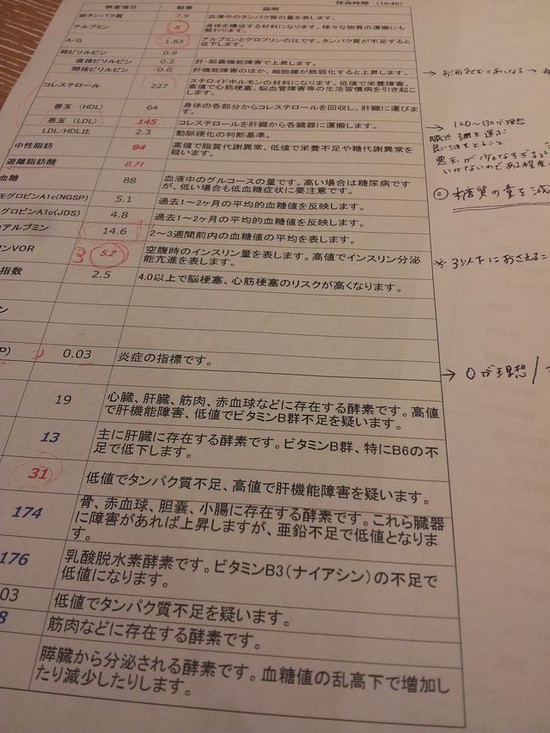 検査項目 結果 説明 採尚時間 (10:40)
総タンパク質 7.9 血液中のタンパク質の量を表します。
アルブミン 身体を構成する材料になります。様々な物質の運搬にも
関わります。
A/G 1.83 アルブミンとグロブリンの比です。タンパク質が不足すると
低下します。
総ビリルビン 0.8
直接ビリルビン 0.2 肝・胆嚢機能障害で上昇します。
間接ビリルビン 0.6 肝機能障害のほか、細胞膜が脆弱化すると上昇します。
コレステロール 227 ステロイドホルモンの材料になります。低値で栄養障害、
高値で心筋梗塞、脳血管障害等の生活習慣病を引き起こ
します。
善玉 (HDL) 64 身体の各部分からコレステロールを回収し、肝臓に運びます。
悪玉 (LDL) 145 コレステロールを肝臓から各臓器に運搬します。
LDL/HDL比 2.3 動脈硬化の判断基準。
中性脂肪 94 高値で脂質代謝異常、低値で栄養不足や糖代謝異常を
疑います。
遊離脂肪酸 0.71
血糖 88 血液中のグルコースの量です。高い場合は糖尿病です
が、低い場合も低血糖症状に要注意です。
モグロビンA1c(NGSP) 5.1 過去1～2ヶ月の平均的血糖値を反映します。
グロビンA1c(JDS) 4.8 過去1～2ヶ月の平均的血糖値を反映します。
アルブミン 14.6 2～3週間前内の血糖値の平均を表します。
ンVOR 3 5.2 空腹時のインスリン量を表します。高値でインスリン分泌
能亢進を表します。
指数 2.5 4.0以上で脳梗塞、心筋梗塞のリスクが高くなります。
P) 0.03 炎症の指標です。
19 心臓、肝臓、筋肉、赤血球などに存在する酵素です。高値
で肝機能障害、低値でビタミンB群不足を疑います。
13 主に肝臓に存在する酵素です。ビタミンB群、特にB6の不足
で低下します。
31 低値でタンパク質不足、高値で肝機能障害を疑います。
174 骨、赤血球、胆嚢、小腸に存在する酵素です。これら臓器
に障害があれば上昇しますが、亜鉛不足で低値となりま
す。
176 乳酸脱水素酵素です。ビタミンB3(ナイアシン)の不足で
低値になります。
03 低値でタンパク質不足を疑います。
8 筋肉などに存在する酵素です。
膵臓から分泌される酵素です。血糖値の乱高下で増加し
たり減少したりします。
120～130が理想
◎ 糖質の量を減
※ 3以下におさえること
→ 0が理想